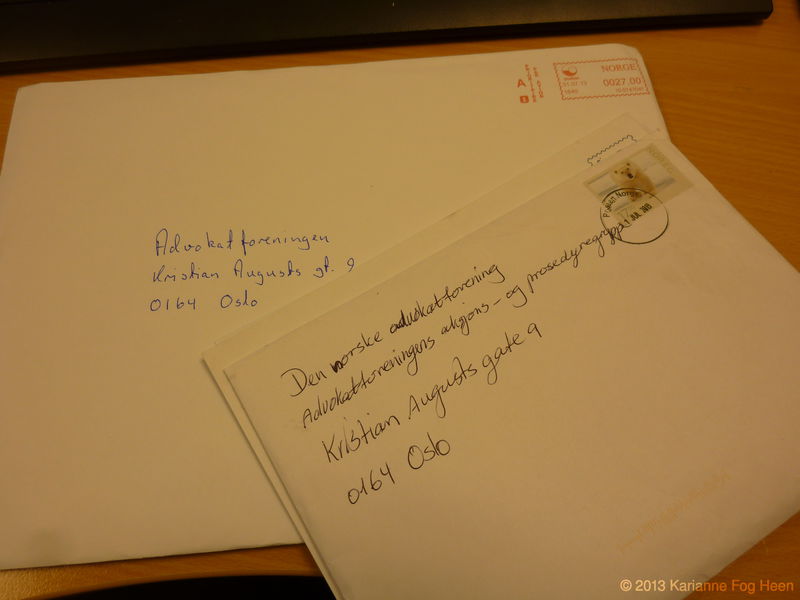 NORGE
0027.00
Advokatforeningen
Kristian Augusts gt. 9
0164 Oslo
NOREG
Den norske advokatforening
Advokatforeningens aksjons- og prosedyregruppe
Kristian Augusts gate 9
0164 Oslo
© 2013 Karianne Fog Heen